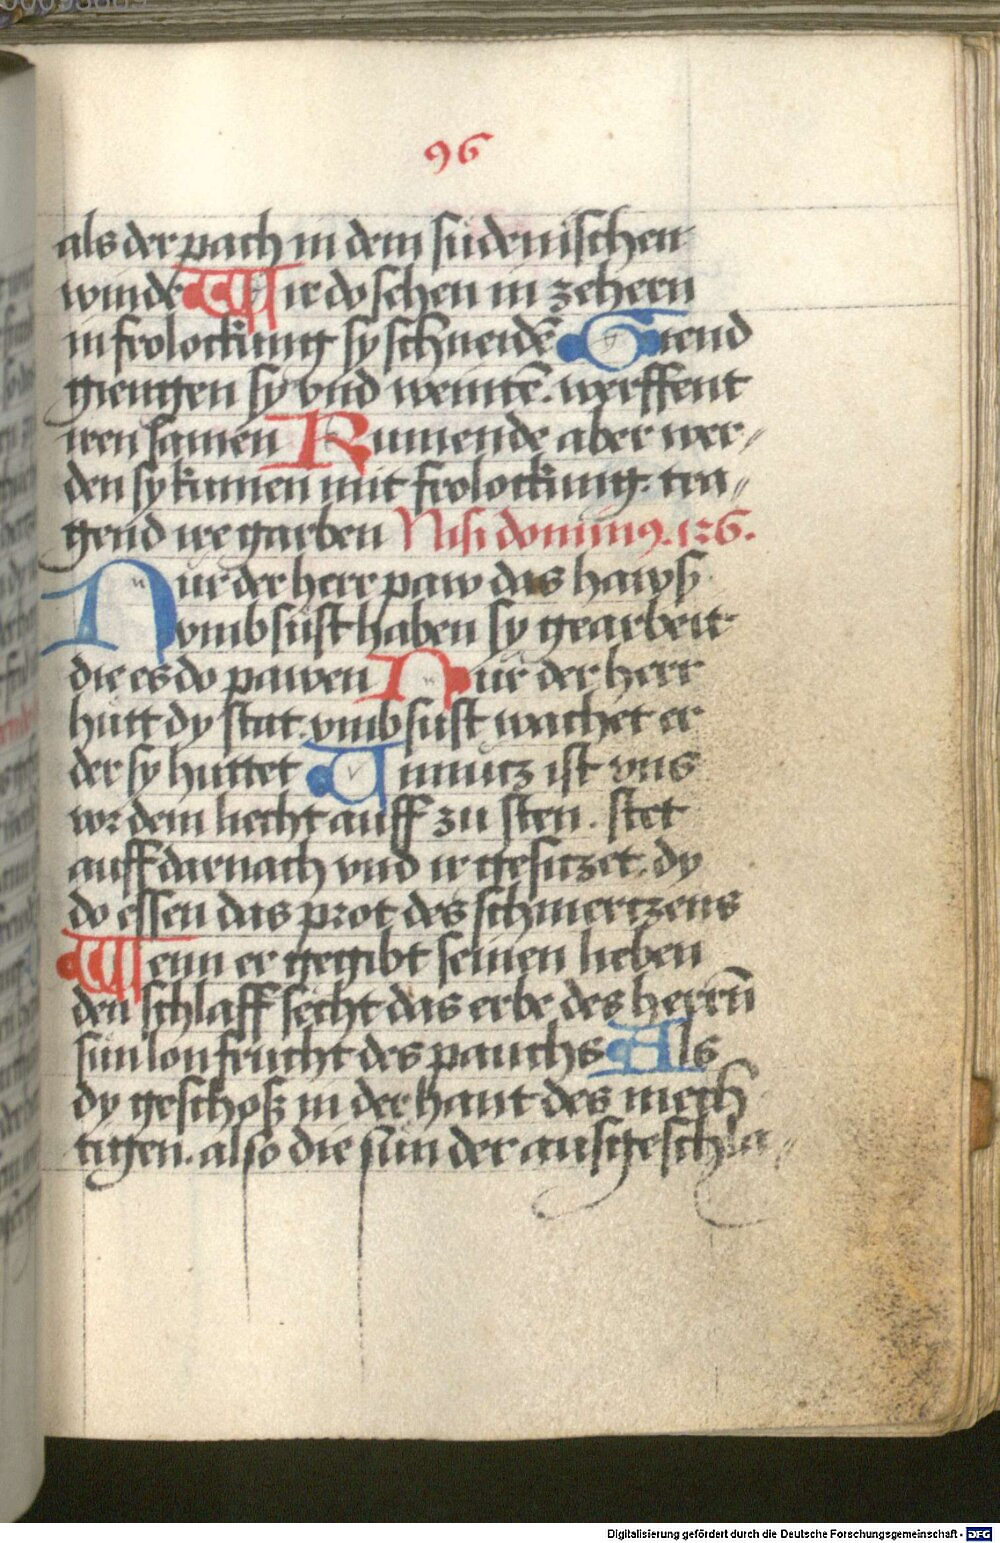 96
als der pach in dem sudenischen
winde Wir do sehen in zehern
in frolockung sy schneidē Giend
giengen sy vnd weintē. werffent
iren samen Kumende aber wer⸗
den sy kumen mit frolockung. tra⸗
gend ire garben Nisi dominꝰ. 126.
Nur der herr paw das hawß
vmbsüst haben sy gearbeit
die es do pawen Nur der herr
hutt dy stat. vmbsüst wachet er
der sy huttet Vnnücz ist vns
vor dem liecht auff zu sten. stet
auff darnach vnd ir gesiczet. dy
do essen das prot des schmertzens
Wenn er gegibt seinen lieben
den schlaff secht das erbe des herrn̄
sun lon frucht des pauchs Als
dy geschoß in der hant des mech
tigen. also die sün der ausgeschla⸗
Digitalisierung gefördert durch die Deutsche Forschungsgemeinschaft - DFG